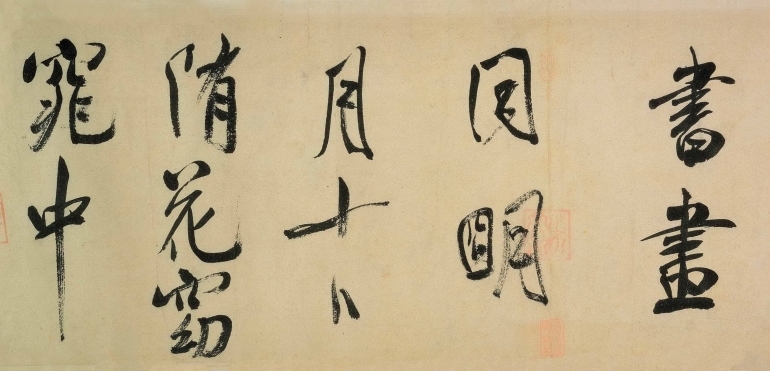 書畫
同明
月十日
隋花窈
窕中